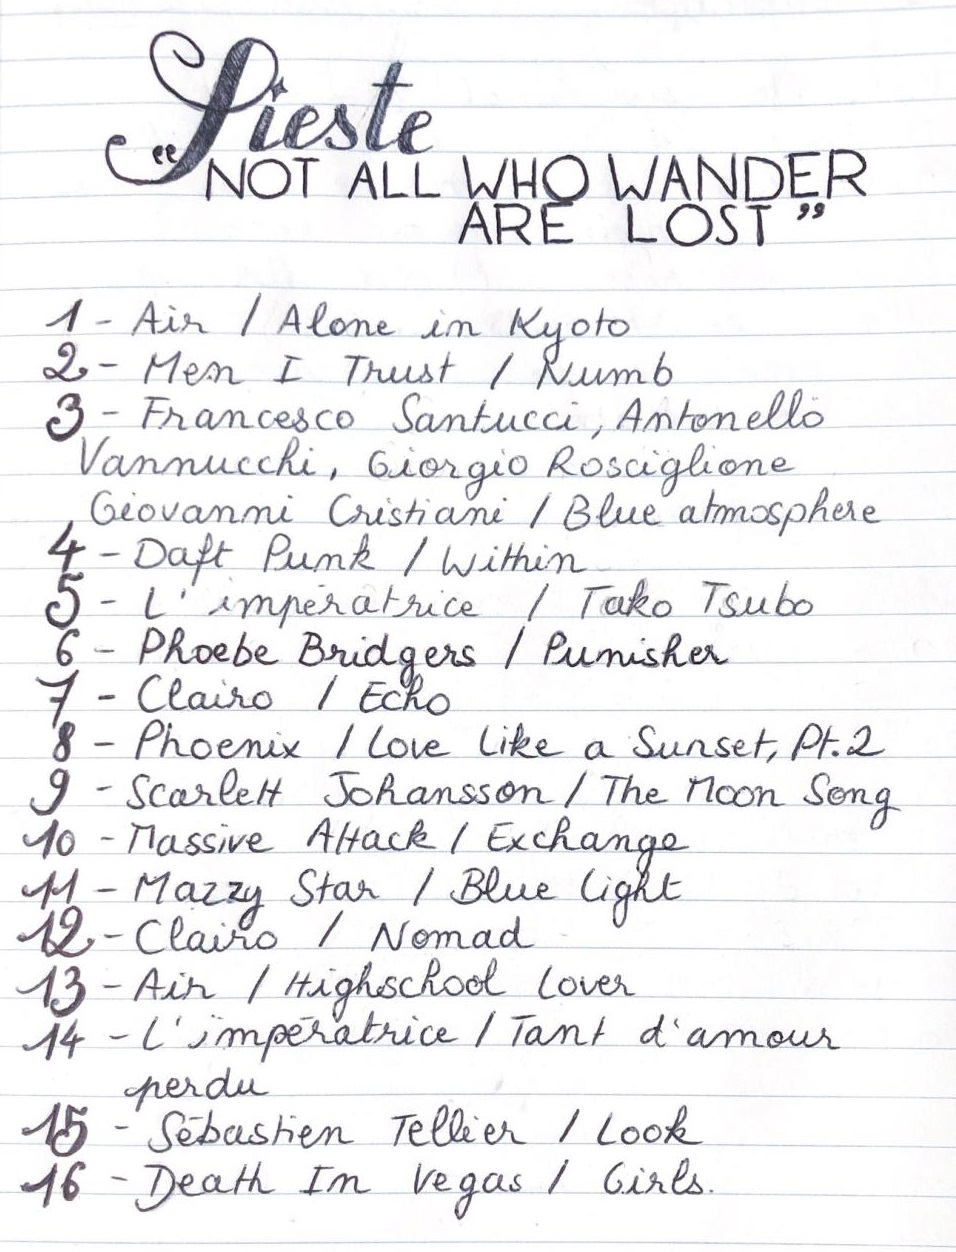 Sieste
“NOT ALL WHO WANDER
ARE LOST”
1 - Air / Alone in Kyoto
2 - Men I Trust / Numb
3 - Francesco Santucci, Antonello
Vannucchi, Giorgio Rosciglione
Giovanni Cristiani / Blue atmosphere
4 - Daft Punk / Within
5 - L'impératrice / Tako Tsubo
6 - Phoebe Bridgers / Punisher
7 - Clairo / Echo
8 - Phoenix / Love like a Sunset, Pt.2
9 - Scarlett Johansson / The Moon Song
10 - Massive Attack / Exchange
11 - Mazzy Star / Blue light
12 - Clairo / Nomad
13 - Air / Highschool Lover
14 - L'impératrice / Tant d'amour
perdu
15 - Sébastien Tellier / Look
16 - Death In Vegas / Girls.